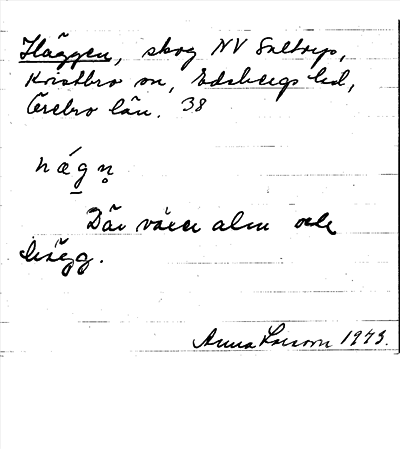 Häggen, skog NV Saltorp,
Kvistbro sn, Edsbergs hd,
Örebro län. 38
hǽgṇ
Där växer alm och
hägg.
Anna Larsson 1973.